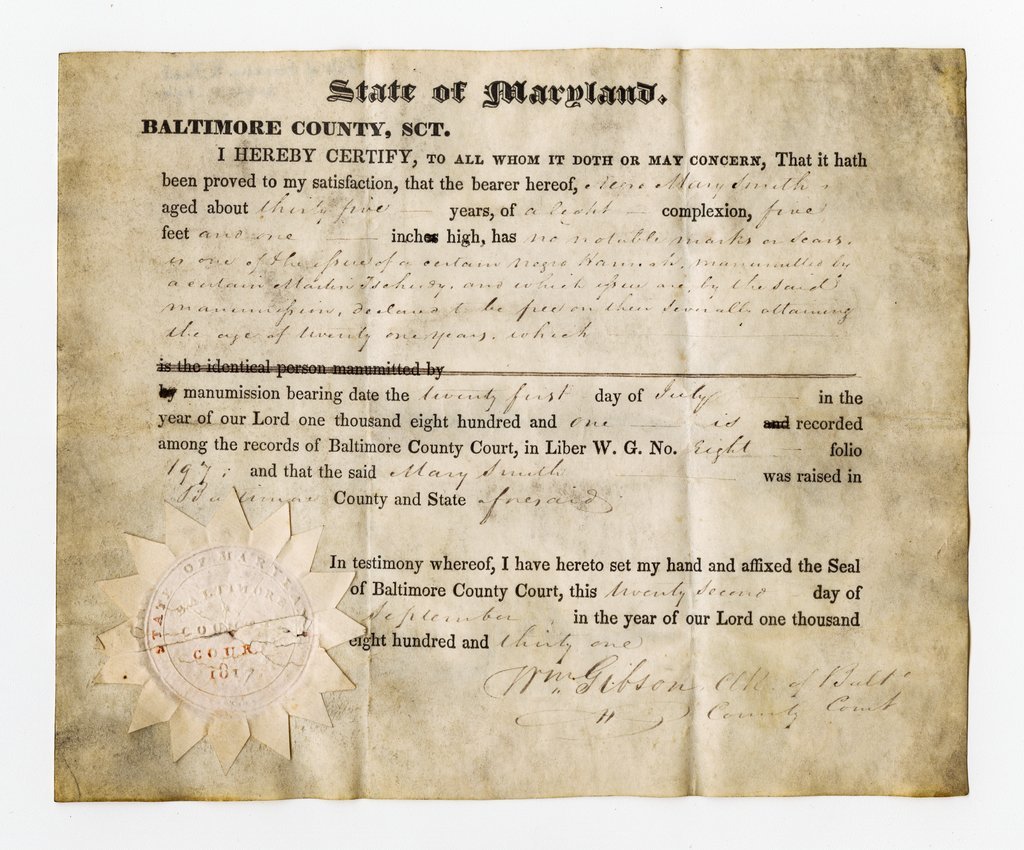 State of Maryland.
BALTIMORE COUNTY, SCT.
I HEREBY CERTIFY, TO ALL WHOM IT DOTH OR MAY CONCERN, That it hath
been proved to my satisfaction, that the bearer hereof, Negro Mary Smith
aged about thirty five years, of a light complexion, five
feet and one inches high, has no notable marks or scars.
is one of the issue of a certain Negro Hannah, manumitted by
a certain Martin and which issue are, by the said
manumission, declared to be free on their severally attaining
the age of twenty one years, which
is the identical person manumitted by
by manumission bearing date the twenty first day of July in the
year of our Lord one thousand eight hundred and one is and recorded
among the records of Baltimore County Court, in Liber W. G. No. Eight folio
197; and that the said Mary Smith was raised in
Baltimore County and State aforesaid
In testimony whereof, I have hereto set my hand and affixed the Seal
of Baltimore County Court, this twenty second day of
September in the year of our Lord one thousand
eight hundred and thirty one
Wm Gibson Clk. of Balt
County Court
STATE OF MARYLAND
BALTIMORE
COUNTY
COUR
181